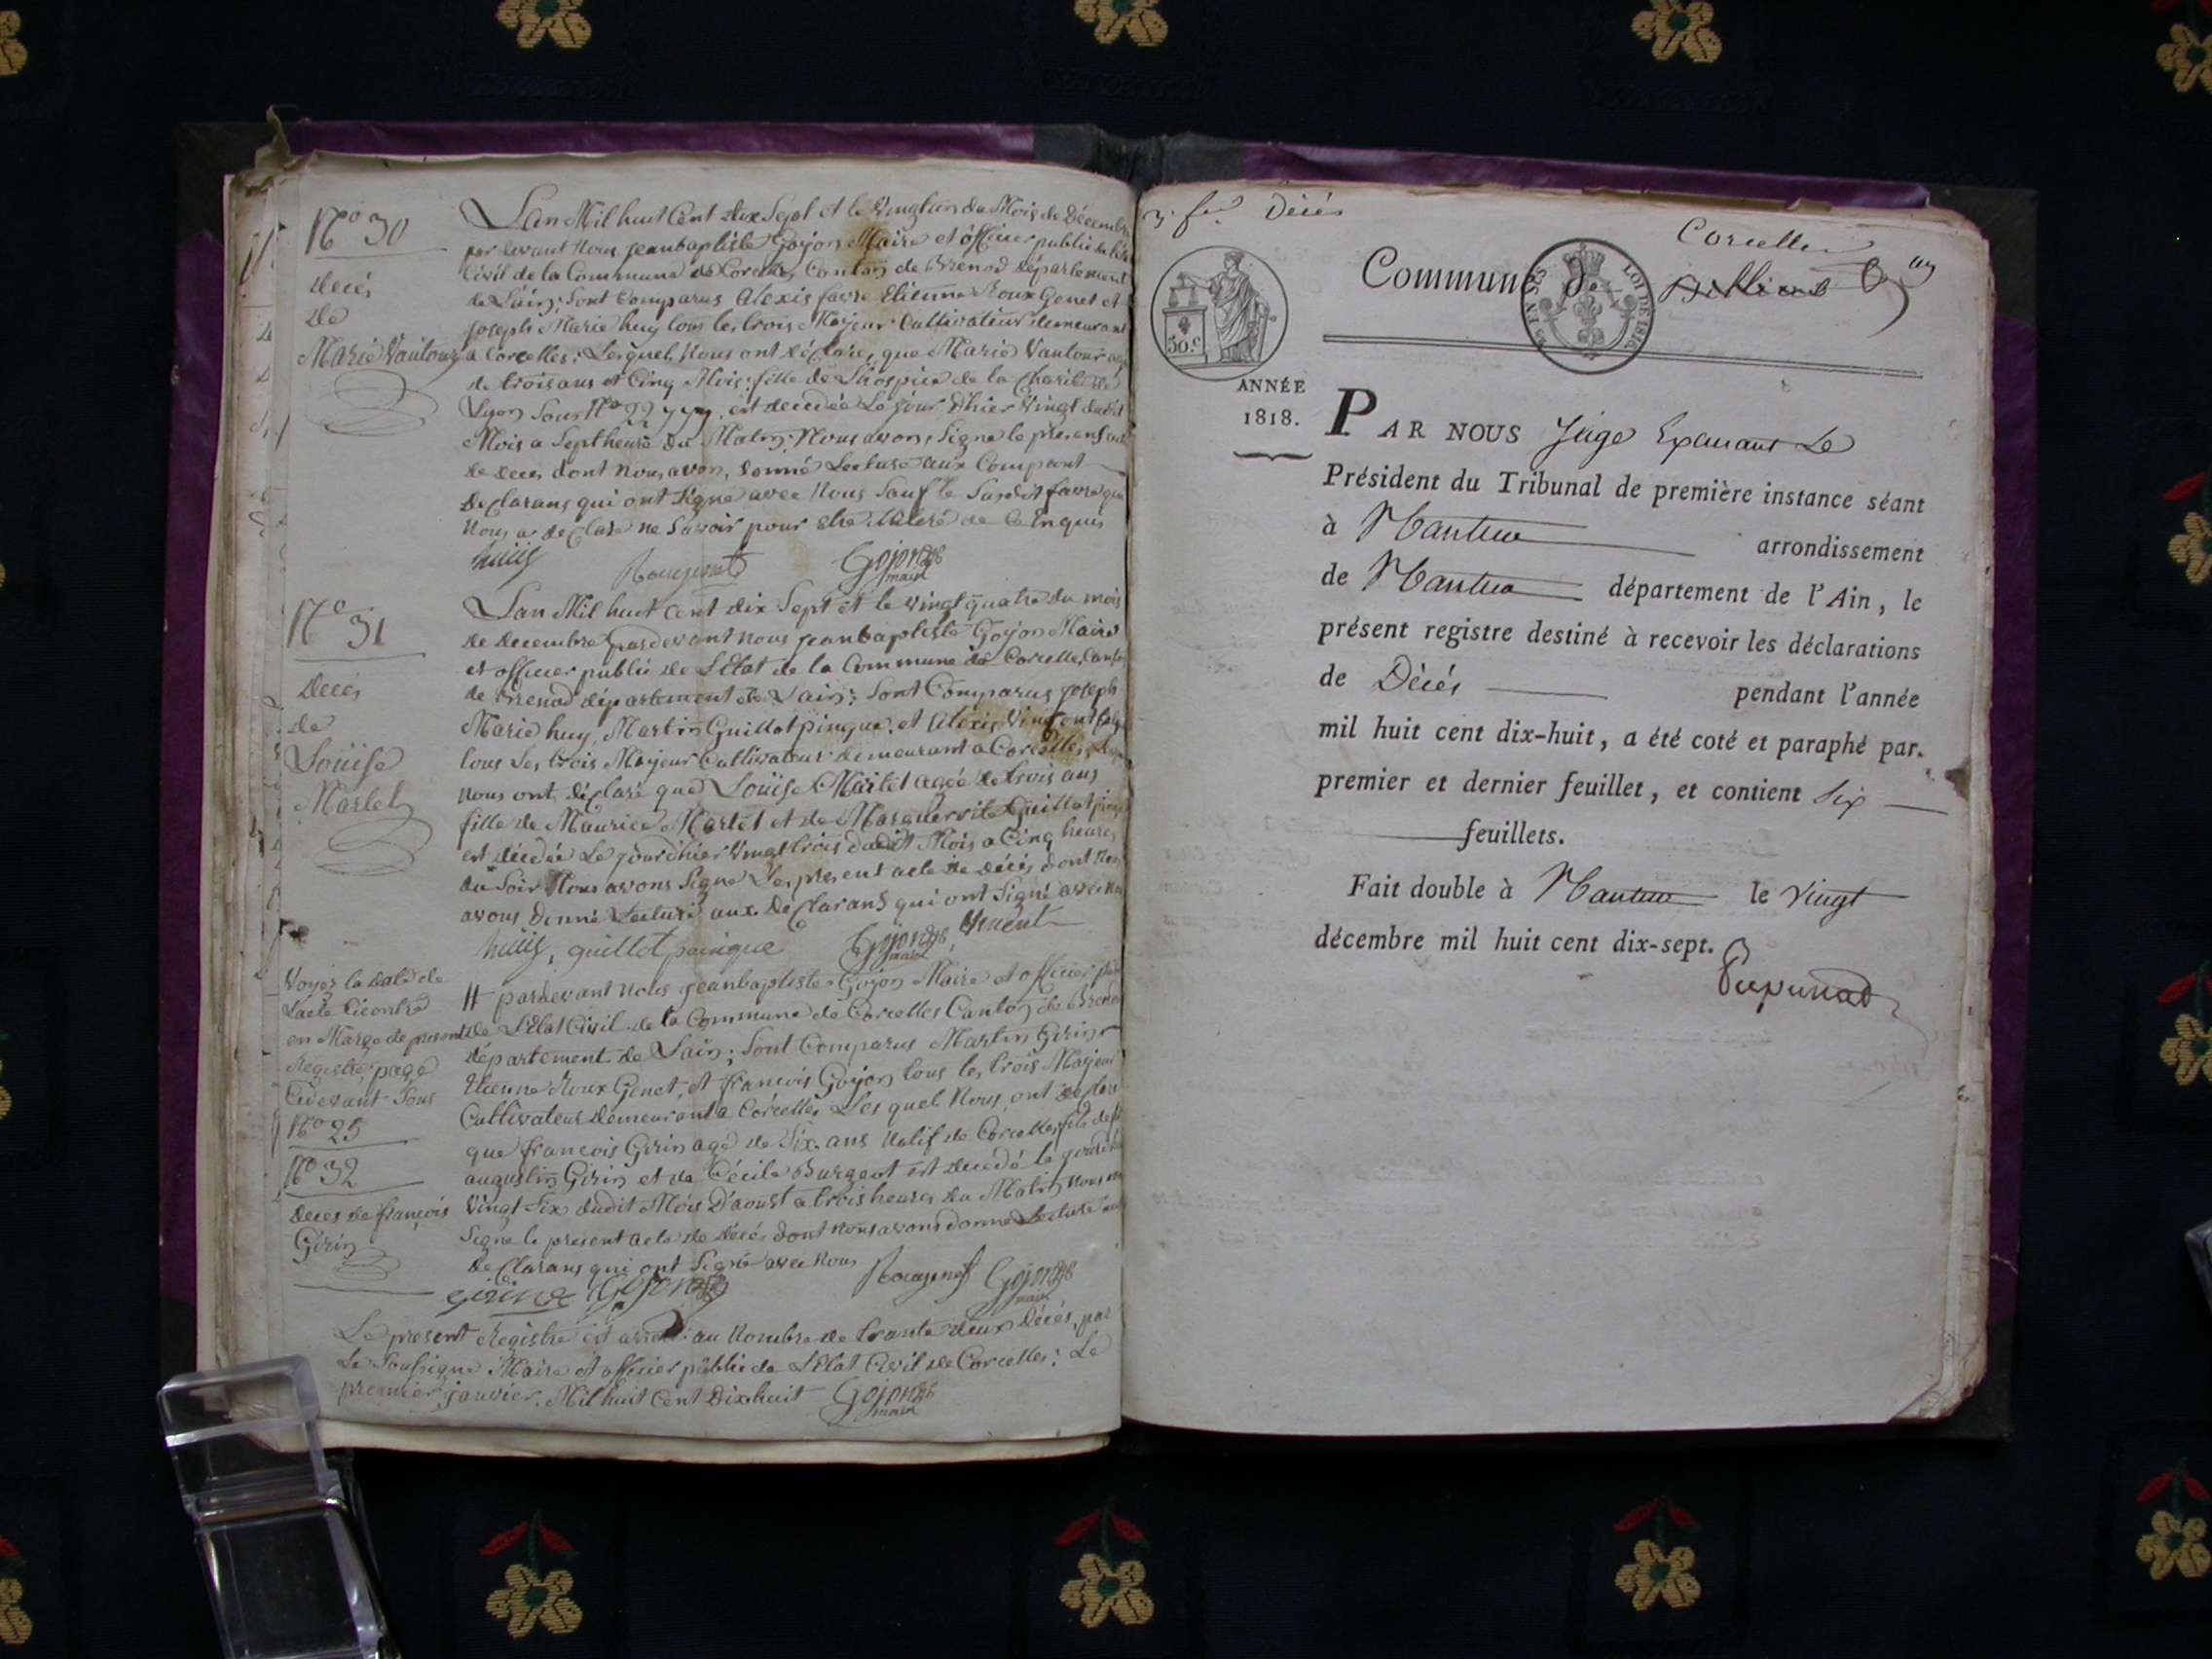 N.o 30
Decés
de
Marie Vautour
Lan Mil huit Cent Dix Sept et le Vingtun du Mois de Décembre
par devant Nous jeanbaptiste Gojon Maire et officier public de l'état
Civil de la Commune de Corcelles, Canton de Brenod département
de Lain; Sont Comparus Alexis favre Etienne Roux Genet et
joseph Marie huy tous les trois Majeur Cultivateur demeurant
a Corcelles; Lesquels Nous ont déclaré, que Marie Vautour agé
de trois ans et Cinq Mois; fille de Lhospice de la Charité de
Lyon Sous N.o est decedée Le jour d'hier Vingt dudit
Mois a Sept heure du Matin; Nous avons Signe le present acte
de deces dont nous avons donné Lecture aux Comparant
Declarans qui ont Signe avec Nous Sauf le Susdit favre que
Nous a declare ne Savoir pour etre illitere de Ce Enquis
huiy Rouxgenet Gojon
maire
N.o 31
Decés
de
Loüise
Martel
Lan Mil huit Cent dix Sept et le vingt quatre du mois
de decembre pardevant nous jeanbaptiste Gojon Maire
et officier public de L'Etat de la Commune de Corcelle, Canton
de Brenod département de Lain; Sont Comparus joseph
Marie huy, Martin Guillotpingue, et Alexis Vincent
tous Les trois Majeur Cultivateur demeurant a Corcelles
nous ont déclaré que Loüise Martel agée de trois ans
fille de Maurice Martel et de Marguerite Guillot
est décedée Le jour d'hier Vingt trois dudit Mois a Cinq heures
du Soir Nous avons Signe Le present acte de Décés dont nous
avons donné Lecture aux Declarans qui ont Signé avec nous
huiy, guillot pcingue Gojon Vincent
maire
Voyez la date de
Lacte Cicontre
en Marge du present
Registre page
Cidevant Sous
N.o 25
N.o 32
Deces de françois
Girin
# pardevant nous jeanbaptiste Gojon Maire et officier public
de L'Etat Civil de la Commune de Corcelles Canton de Brenod
département de Lain; Sont Comparus Martin Girin
Etienne Roux Genet, et françois Gojon tous les trois Majeur
Cultivateur demeurant a Corcelles Les quels Nous ont declaré
que françois Girin agé de Six ans Natif de Corcelles fils de
augustin Girin et de Cécile Burgeot est decedé le jourd'
Vingt Six dudit Mois D'aoust a trois heures du Matin nous avons
Signe le present acte de décés dont nous avons donné Lecture aux
declarans qui ont Signé avec Nous
girin Gojon Rouxgenet Gojon
maire
Le present Registre est arreté au Nombre de trante deux Décés, par
Le Soussigne Maire et officier public de L'Etat Civil de Corcelles; Le
premier janvier Mil huit Cent Dix huit Gojon
maire
Décés
Corcelles
Commune de
50.c
LOI DE 1816.
ANNÉE
1818.
PAR NOUS Juge Exerçant Le
Président du Tribunal de première instance séant
à Nantua arrondissement
de Nantua département de l'Ain, le
présent registre destiné à recevoir les déclarations
de Décés pendant l'année
mil huit cent dix-huit, a été coté et paraphé par
premier et dernier feuillet, et contient Six
feuillets.
Fait double à Nantua le vingt
décembre mil huit cent dix-sept.